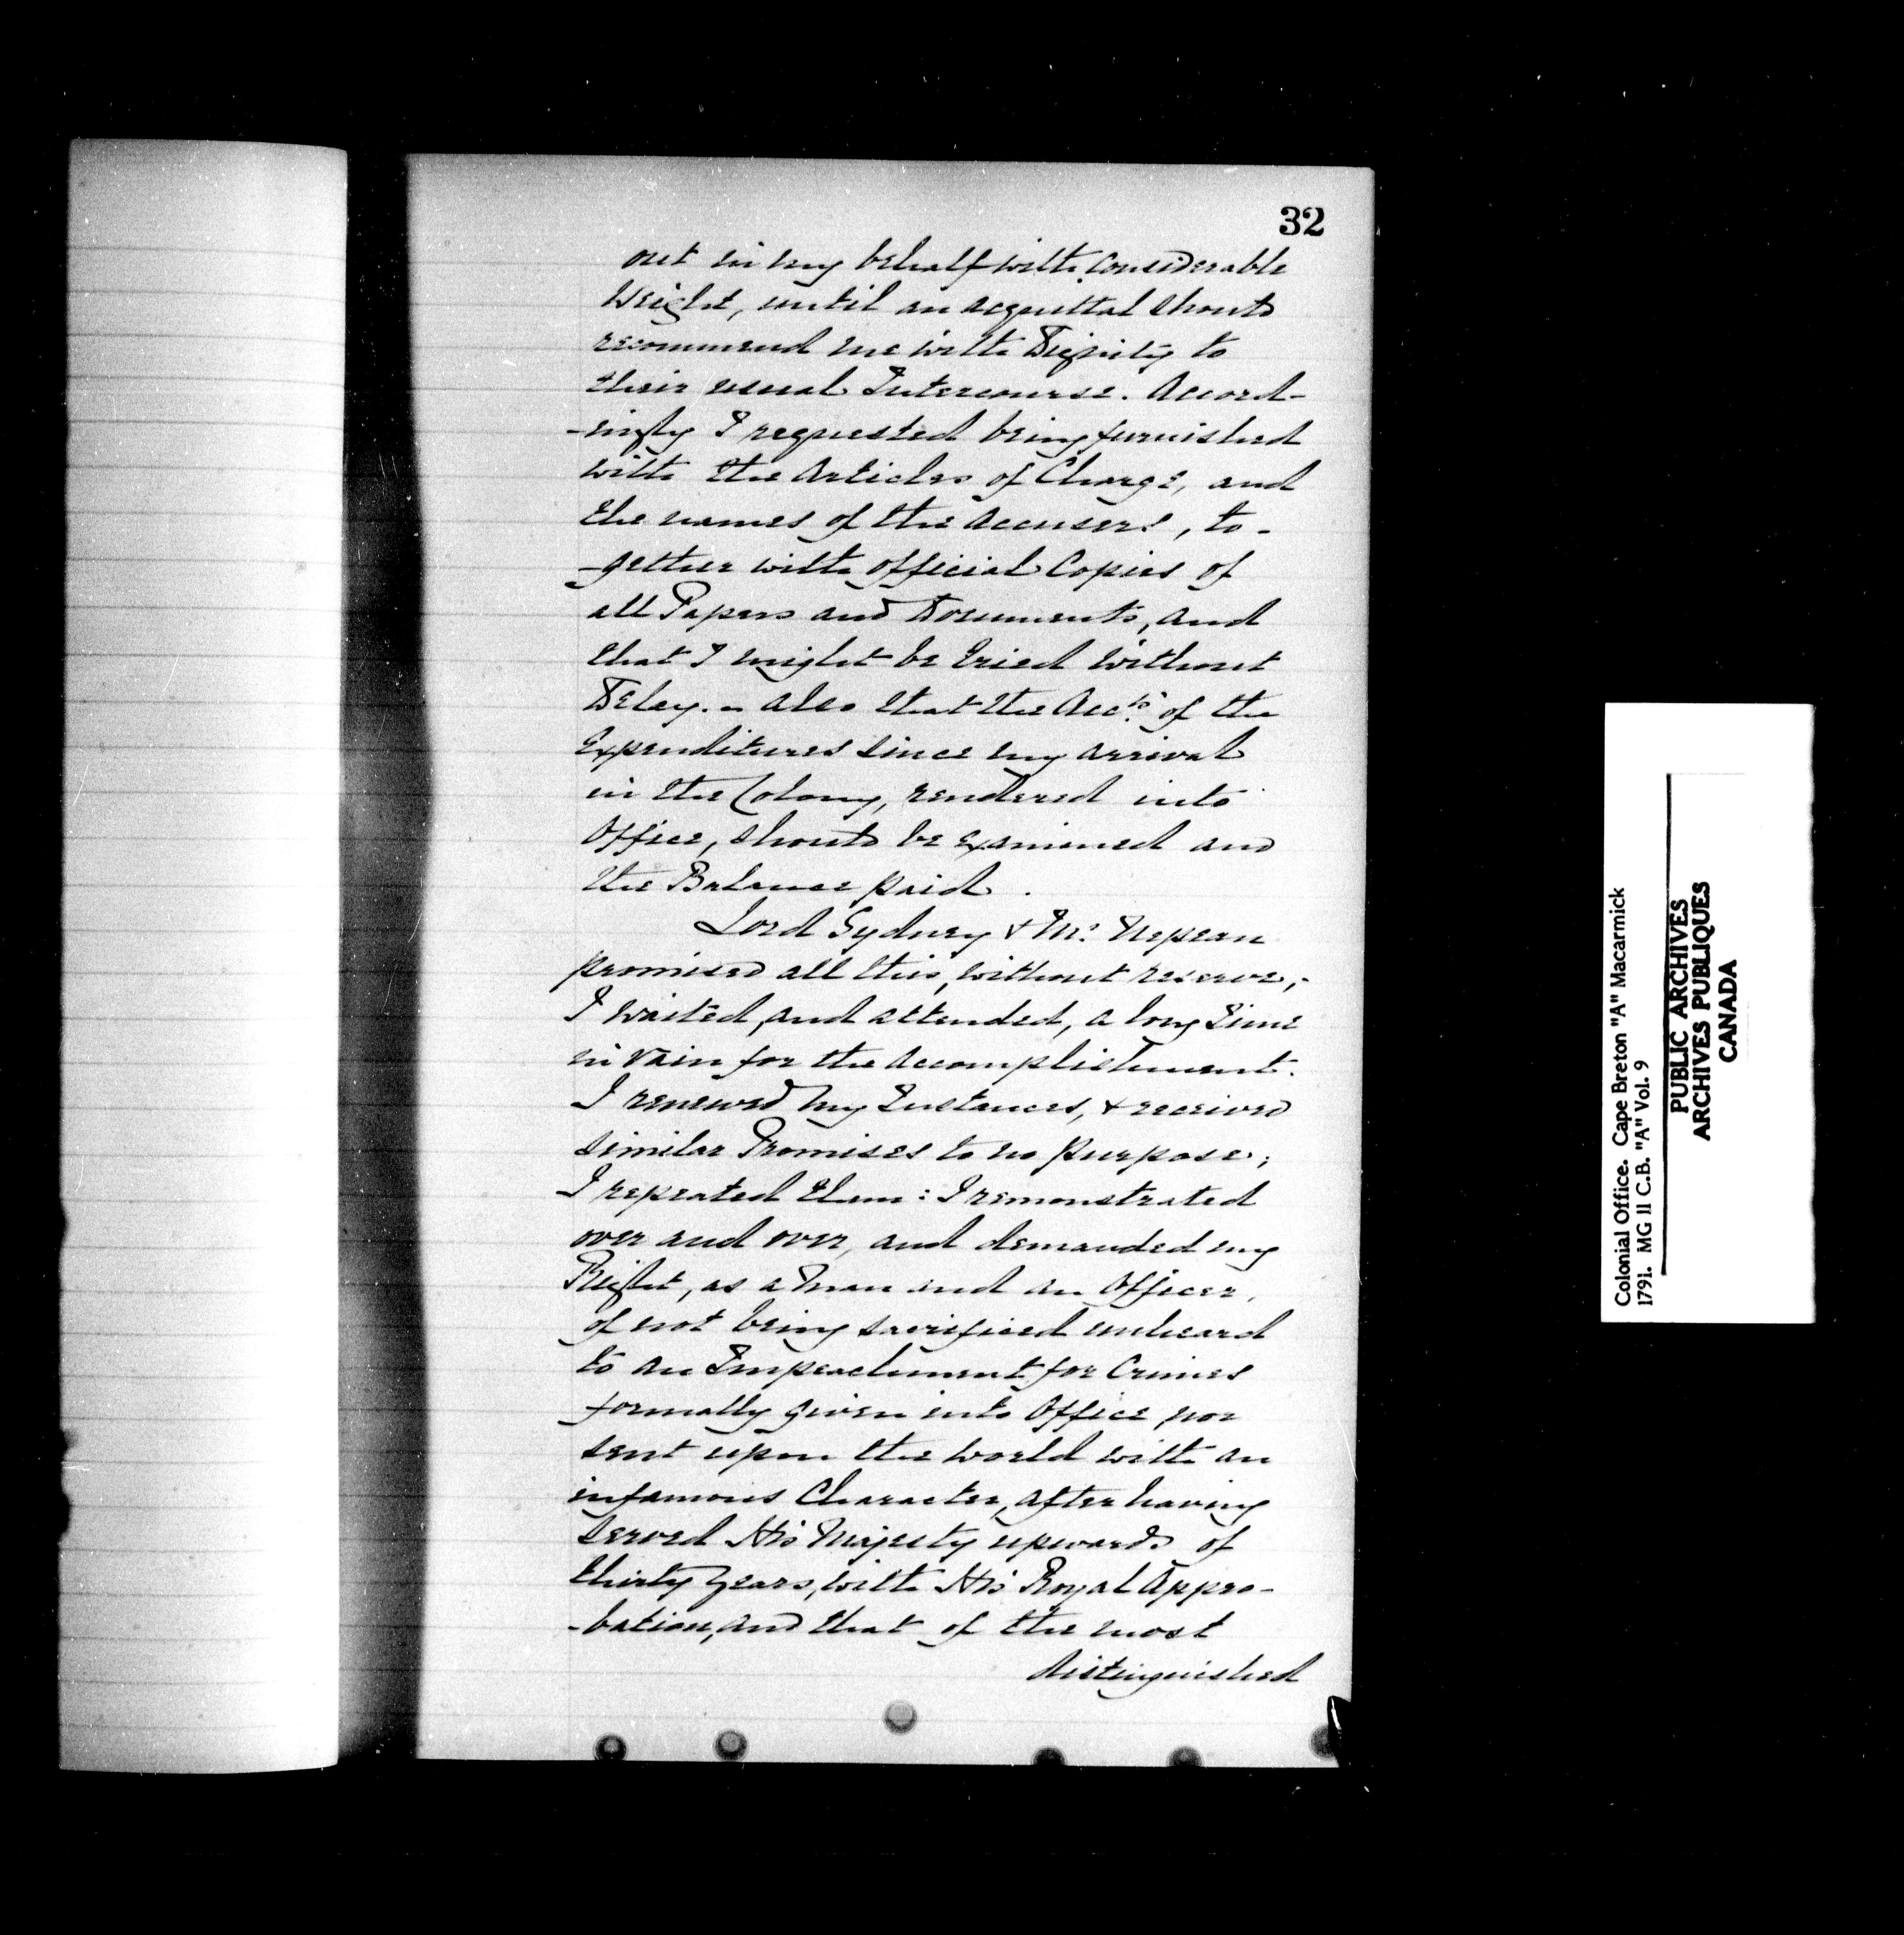 32
out in my behalf with considerable
Weight, until an acquittal should
recommend me with Dignity to
their usual Intercourse. Accord-
-ingly I requested being furnished
with the Articles of Charge, and
the names of the Accusers, to-
-gether with official Copies of
all Papers and Documents, and
that I might be tried without
Delay. - also that the Accts. of the
Expenditures since my arrival
in the Colony, rendered into
Office, should be examined and
the Balance paid.
Lord Sydney & Mr. Nepean
promised all this, without reserve,-
I waited, and attended, a long Time
in vain for the Accomplishment.
I renewed my Instances, & received
similar Promises to no purpose;
I repeated them: I remonstrated
over and over, and demanded my
Right, as a Man and an Officer,
of not being sacrificed unheard
to an Impeachment for Crimes
formally given into Office, nor
sent upon the world with an
infamous Character, after having
served His Majesty upwards of
thirty years, with His Royal Appro-
-bation, and that of the most
distinguished
Colonial Office. Cape Breton "A" Macarnick
1791. MG 11 C.B. "A" Vol. 9
PUBLIC ARCHIVES
ARCHIVES PUBLIQUES
CANADA